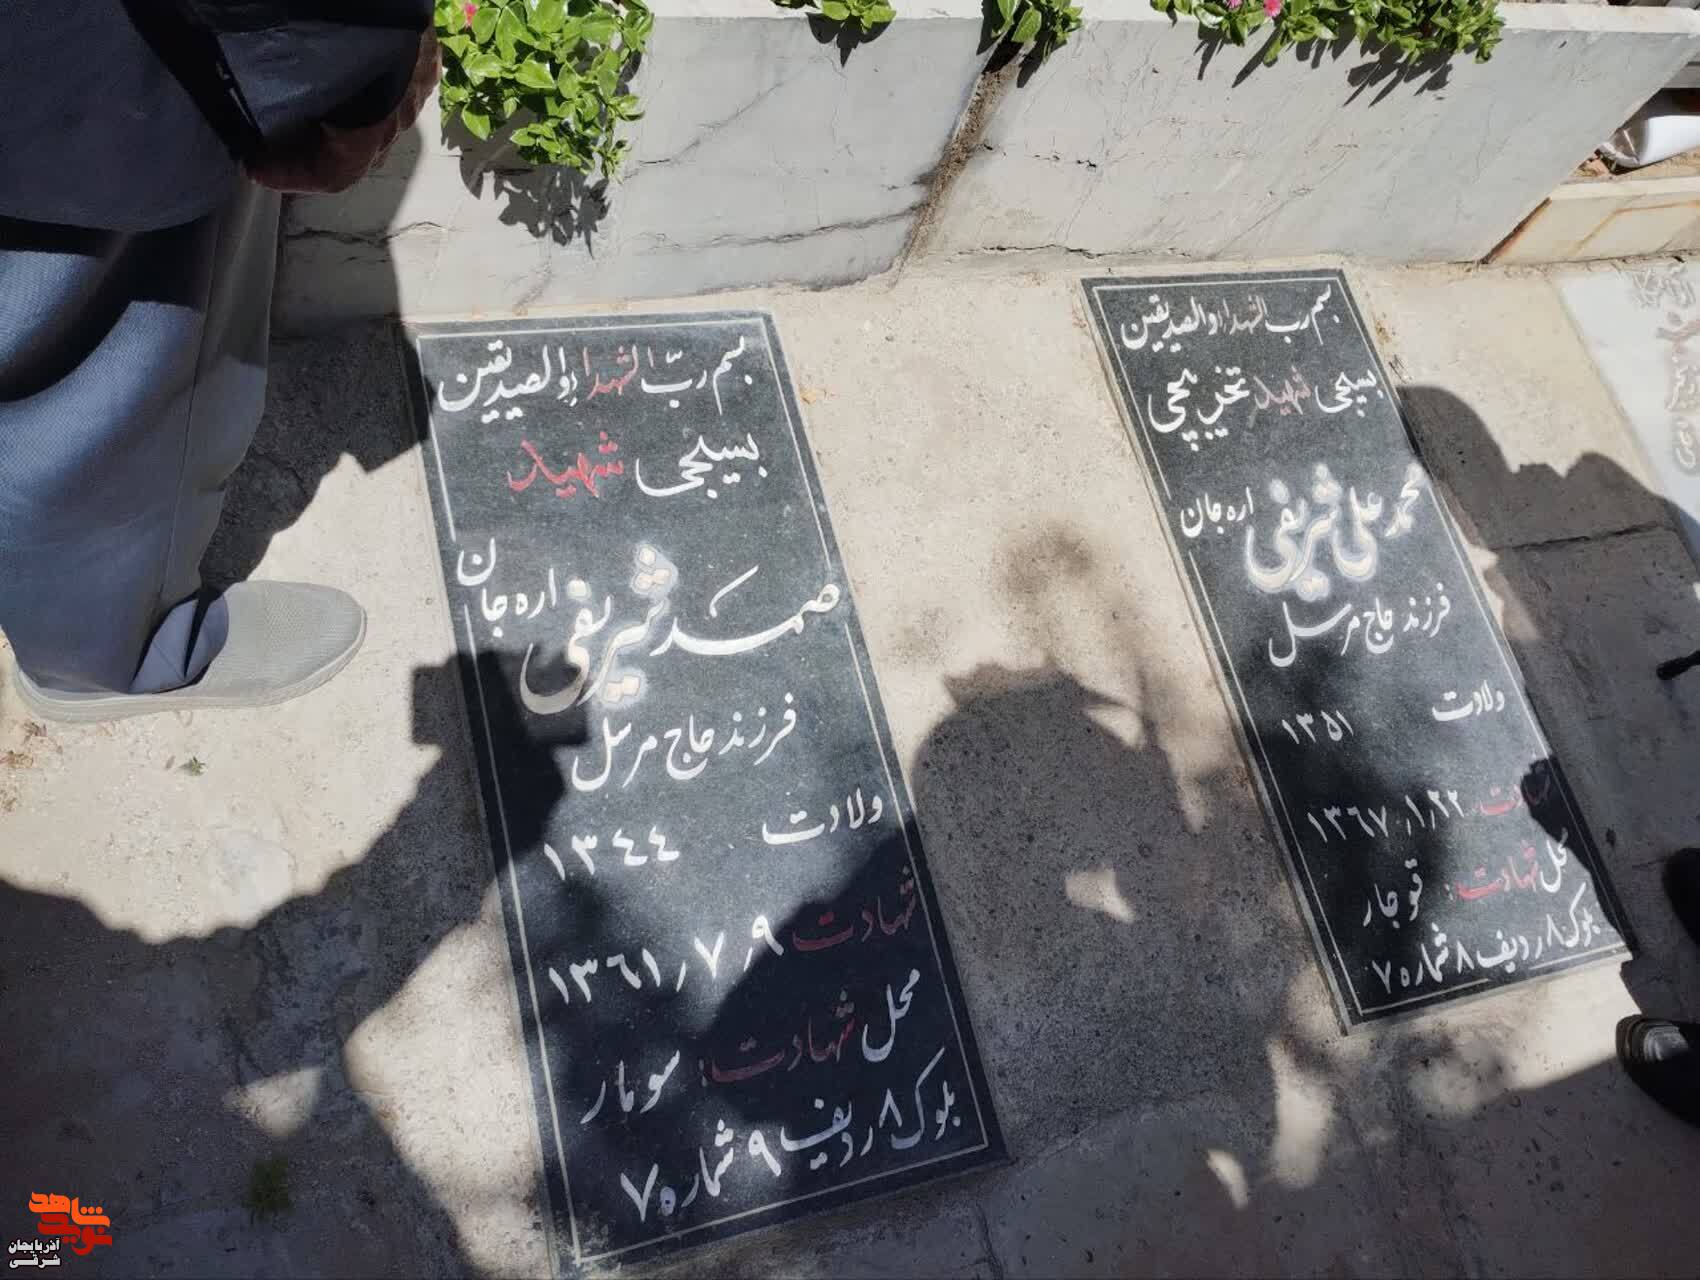 بسم رب الشهداء والصدیقین
بسیجی شهید تخریبچی
محمد علی شریفی اره جان
فرزند حاج مرسل
ولادت ۱۳۵۱
شهادت ۱۳۶۷٫۱٫۲۲
محل شهادت: قوجار
بلوک ۸ ردیف ۸ شماره ۷
بسم ربّ الشهداءِ والصدیقین
بسیجی شهید
صمد شریفی اره جان
فرزند حاج مرسل
ولادت ۱۳٤٤
شهادت ۱۳٦۱٫۷٫۹
محل شهادت: سومار
بلوک ۸ ردیف ۹ شماره ۷
نوید شاهد
آذربایجان
شرقی